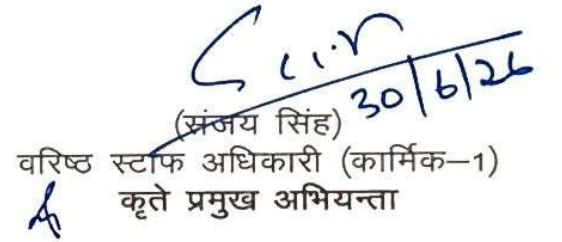 30/6/26
(संजय सिंह)
वरिष्ठ स्टॉफ अधिकारी (कार्मिक–1)
कृते प्रमुख अभियन्ता